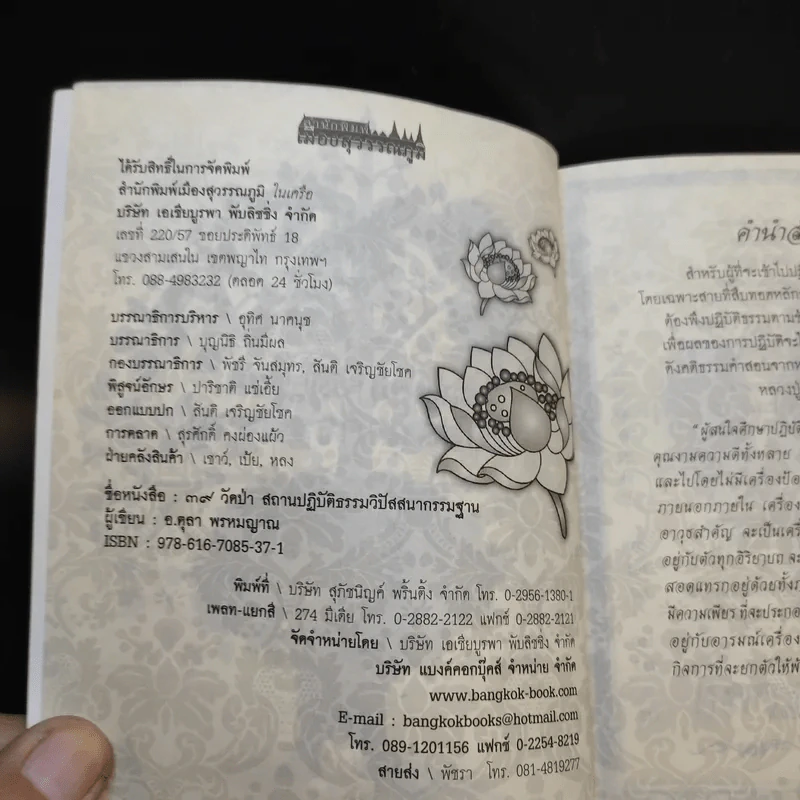 สำนักพิมพ์
เมืองสุวรรณภูมิ
ได้รับสิทธิ์ในการจัดพิมพ์
สำนักพิมพ์เมืองสุวรรณภูมิ ในเครือ
บริษัท เอเชียบูรพา พับลิชชิ่ง จำกัด
เลขที่ 220/57 ซอยประดิพัทธ์ 18
แขวงสามเสนใน เขตพญาไท กรุงเทพฯ
โทร. 088-4983232 (ตลอด 24 ชั่วโมง)
บรรณาธิการบริหาร \ อุทิศ นาคนุช
บรรณาธิการ \ บุญนิธิ ถิ่นมีผล
กองบรรณาธิการ \ พัชรี จันสมุทร, สันติ เจริญชัยโชค
พิสูจน์อักษร \ ปาริชาติ แซ่เอี้ย
ออกแบบปก \ สันติ เจริญชัยโชค
การตลาด \ สุรศักดิ์ คงผ่องแผ้ว
ฝ่ายคลังสินค้า \ เชาว์, เปีย, หลง
ชื่อหนังสือ : ๓๙ วัดป่า สถานปฏิบัติธรรมวิปัสสนากรรมฐาน
ผู้เขียน : อ.ตุลา พรหมญาณ
ISBN : 978-616-7085-37-1
พิมพ์ที่ \ บริษัท สุภัชนิญค์ พริ้นติ้ง จำกัด โทร. 0-2956-1380-1
เพลท-แยกสี \ 274 มีเดีย โทร. 0-2882-2122 แฟกซ์ 0-2882-2121
จัดจำหน่ายโดย \ บริษัท เอเชียบูรพา พับลิชชิ่ง จำกัด
บริษัท แบงค์คอกบุ๊คส์ จำหน่าย จำกัด
www.bangkok-book.com
E-mail : bangkokbooks@hotmail.com
โทร. 089-1201156 แฟกซ์ 0-2254-8219
สายส่ง \ พัชรา โทร. 081-4819277
คำนำ
สำหรับผู้ที่จะเข้าไป
โดยเฉพาะสายที่สืบทอดหลัก
ต้องพึงปฏิบัติธรรมตาม
เพื่อผลของการปฏิบัติจะ
ดังคติธรรมคำสอนจาก
หลวงปู่
"ผู้สนใจศึกษาปฏิบัติ
คุณงามความดีทั้งหลาย
และไปโดยไม่มีเครื่องป้อ
ภายนอกภายใน เครื่อง
อาวุธสำคัญ จะเป็นเครื่
อยู่กับตัวทุกอิริยาบถ จะ
สอดแทรกอยู่ด้วยทั้ง
มีความเพียร ที่จะประกอ
อยู่กับอารมณ์เครื่อง
กิจการที่จะยกตัวให้พ้